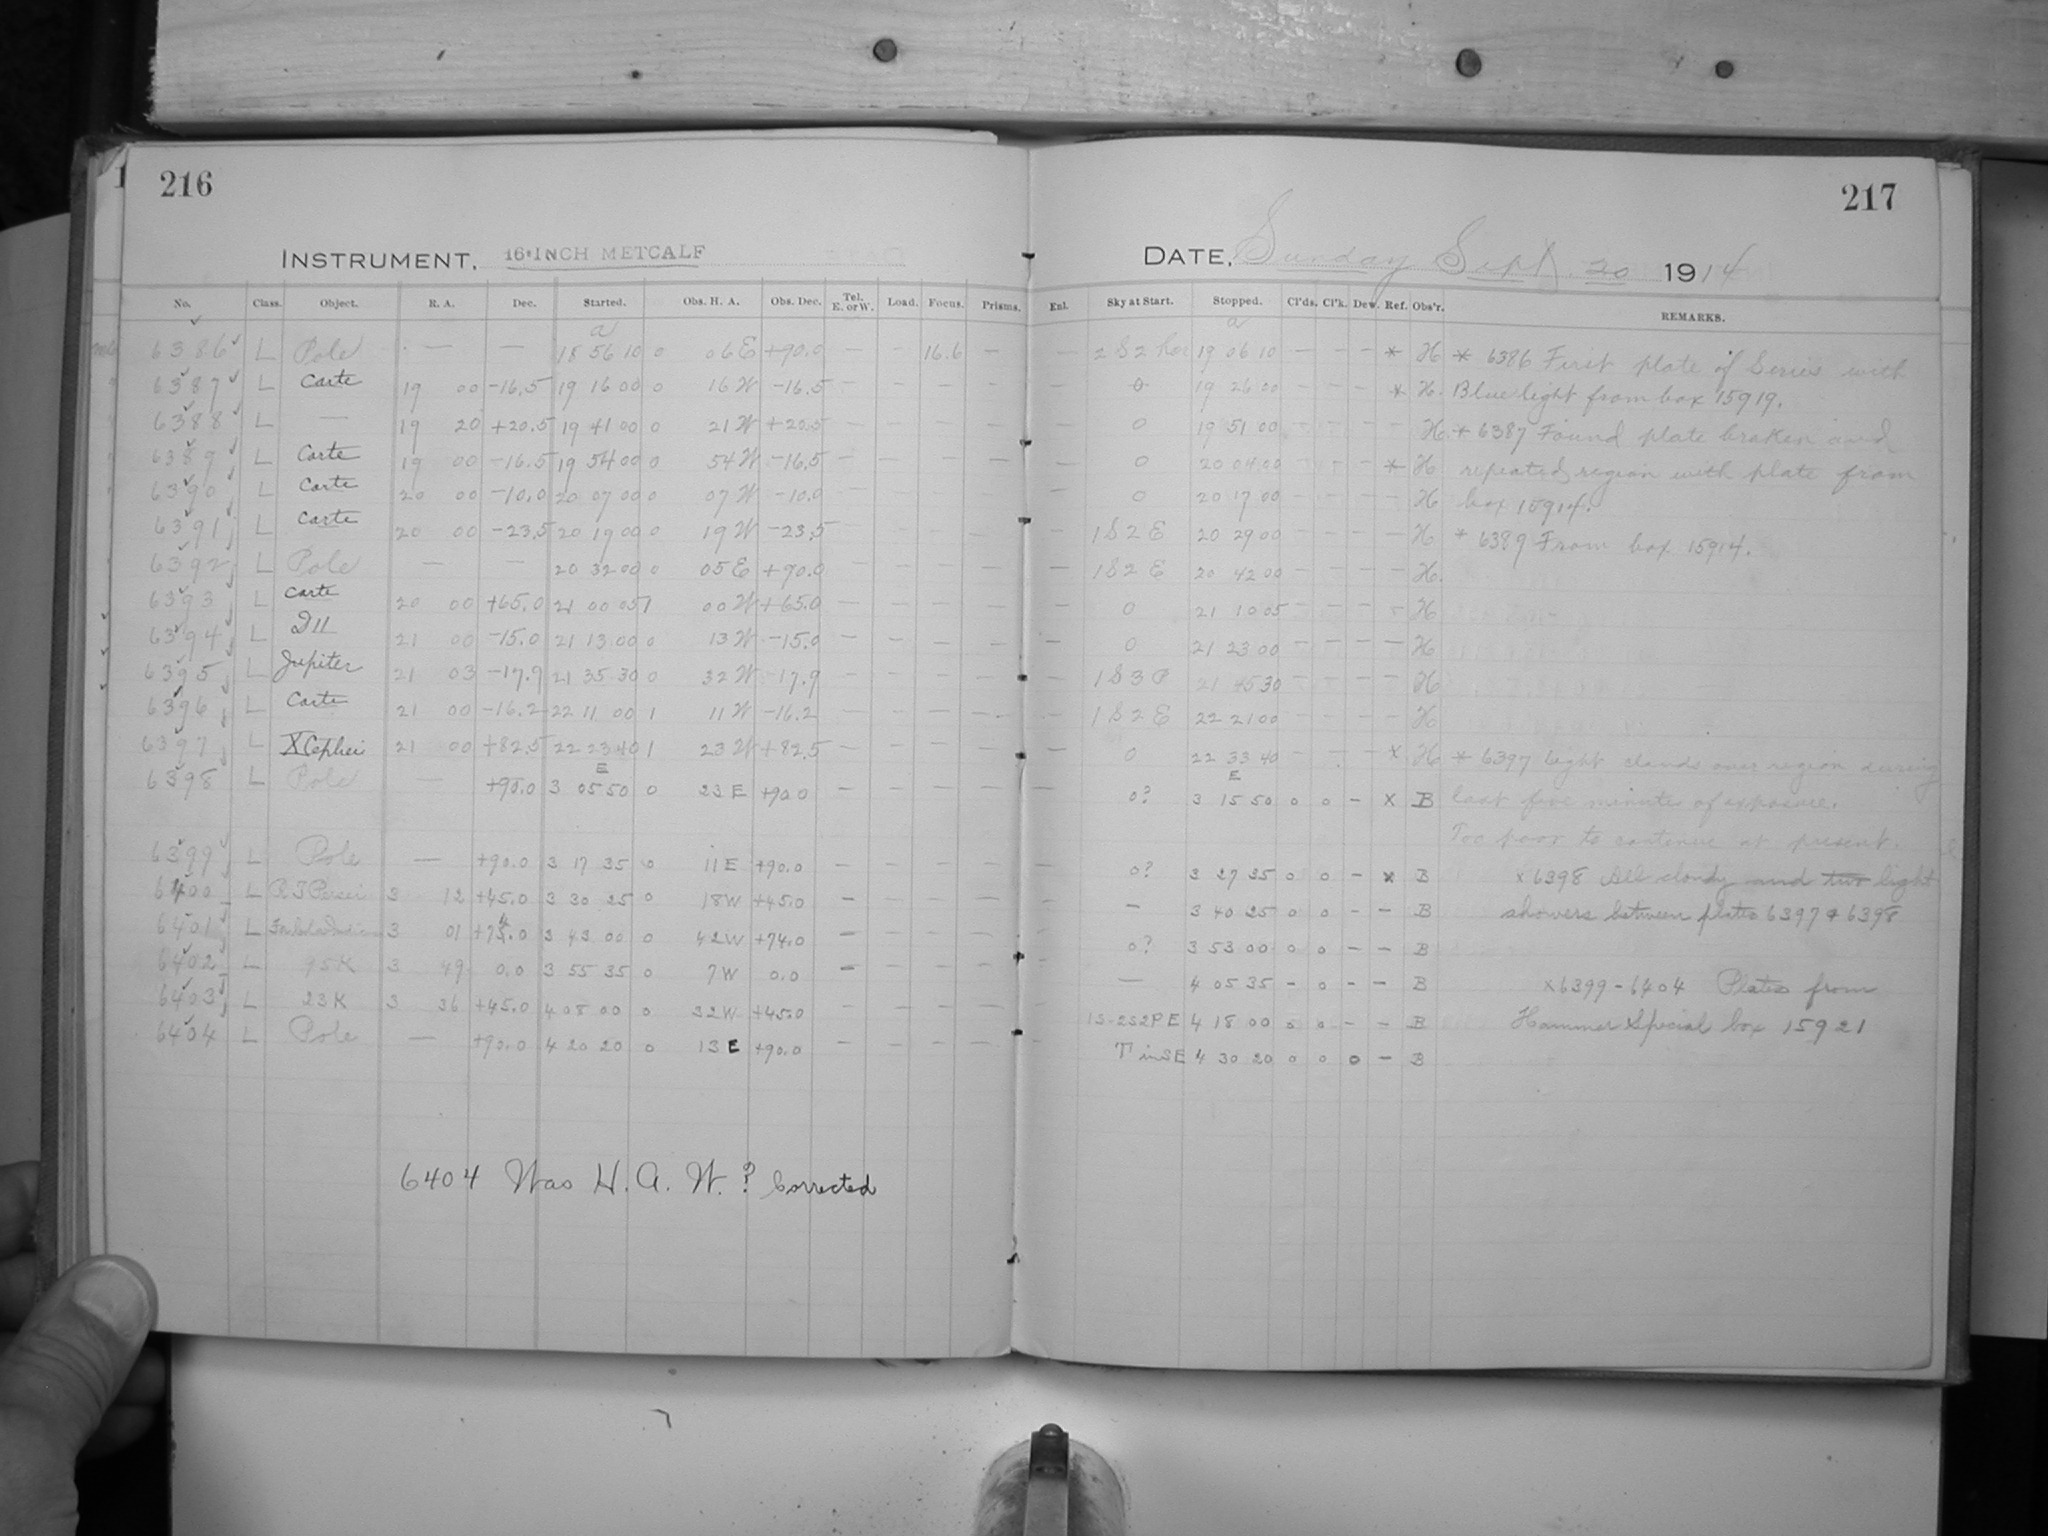 216
INSTRUMENT, 16-INCH METCALF
No. Class. Object. R. A. Dec. Started. Obs. H. A. Obs. Dec. Tel. E. or W. Load. Focus. Prisms.
a
6386 L Pole — — 18 56 10 0 06 E +90.0 — — 16.6 —
6387 L Carte 19 00 -16.5 19 16 00 0 16 W -16.5 — — — —
6388 L — 19 20 +20.5 19 41 00 0 21 W +20.5 — — — —
6389 L Carte 19 00 -16.5 19 54 00 0 54 W -16.5 — — — —
6390 L Carte 20 00 -10.0 20 07 00 0 07 W -10.0 — — — —
6391 L Carte 20 00 -23.5 20 19 00 0 19 W -23.5 — — — —
6392 L Pole — — 20 32 00 0 05 E +90.0 — — — —
6393 L Carte 20 00 +65.0 21 00 05 1 00 W +65.0 — — — —
6394 L 21 00 -15.0 21 13 00 0 13 W -15.0 — — — —
6395 L Jupiter 21 03 -17.9 21 35 30 0 32 W -17.9 — — — —
6396 L Carte 21 00 -16.2 22 11 00 1 11 W -16.2 — — — —
6397 L X Cephei 21 00 +82.5 22 23 40 1 23 W +82.5 — — — —
E
6398 L Pole — +90.0 3 05 50 0 23 E +90.0 — — — —
6399 L Pole — +90.0 3 17 35 0 11 E +90.0 — — — —
6400 L 3 12 +45.0 3 30 25 0 18 W +45.0 — — — —
6401 L 3 01 +74.0 3 43 00 0 42 W +74.0 — — — —
6402 L 95 K 3 49 0.0 3 55 35 0 7 W 0.0 — — — —
6403 L 23 K 3 36 +45.0 4 08 00 0 32 W +45.0 — — — —
6404 L Pole — +90.0 4 20 20 0 13 E +90.0 — — — —
6404 Was H. A. W. ? Corrected
217
DATE, Sunday Sept. 20 1914
Enl. Sky at Start. Stopped. Cl'ds. Cl'k. Dew. Ref. Obs'r. REMARKS.
a
— 2 S 2 19 06 10 — — — * H * 6386 First plate of Series with
— 0 19 26 00 — — — * H. Blue light from box 15919.
0 19 51 00 — — — H. * 6387 Found plate broken and
— 0 20 04 00 — — — * H repeated region with plate from
— 0 20 17 00 — — — — H box 15914.
— 1 S 2 E 20 29 00 — — — — H * 6389 From box 15914.
— 1 S 2 E 20 42 00 — — — — H.
— 0 21 10 05 — — — — H
— 0 21 23 00 — — — — H
— 1 S 3 P 21 45 30 — — — — H
— 1 S 2 E 22 21 00 — — — — H
— 0 22 33 40 — — — x H * 6397 Light clouds over region during
E
— 0? 3 15 50 0 0 — x B last five minutes of exposure.
Too poor to continue at present.
— 0? 3 27 35 0 0 — x B x 6398 All cloudy and two light
— 3 40 25 0 0 — — B showers between plates 6397 & 6398
0? 3 53 00 0 0 — — B
— 4 05 35 — 0 — — B x 6399 - 6404 Plates from
1S-2S2PE 4 18 00 0 0 — — B Hammer Special box 15921
T in SE 4 30 20 0 0 0 — B